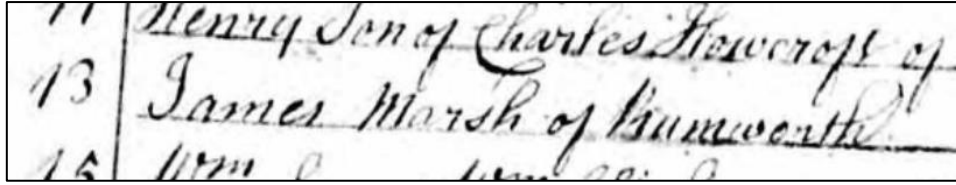 11 Henry Son of Charles Howcroft of
13 James Marsh of Rumworth
15 Wm Wm